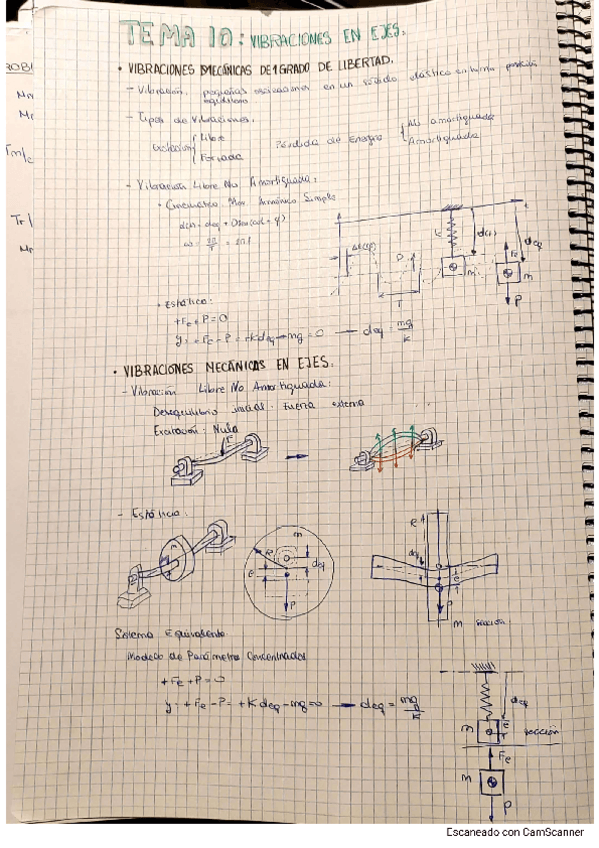 TEMA 10: VIBRACIONES EN EJES.
• VIBRACIONES MECÁNICAS DE 1 GRADO DE LIBERTAD.
- Vibración: pequeñas oscilaciones en un sólido elástico en torno posición
equilibrio
- Tipos de Vibraciones:
Excitación { Libre
Forzada
Pérdida de Energía { No amortiguada
Amortiguada
- Vibración Libre No Amortiguada:
• Cinemática: Mov. Armónico Simple
ω = 2π/T = 2πf
• Estática:
+Fe + P = 0
y: +Fe - P = +Kdeq - mg = 0 → deq = mg/K
d(t)
deq
K
m
m
Fe
P
T
• VIBRACIONES MECÁNICAS EN EJES.
- Vibración Libre No Amortiguada:
Desequilibrio inicial: fuerza externa
Excitación: Nula
F
- Estática:
m
R
e
deq
P
deq
e
P
m sección
Sistema Equivalente
Modelo de Parámetros Concentrados
+Fe + P = 0
y: +Fe - P = +Kdeq - mg = 0 → deq = mg/K
deq
m
e
sección
Fe
m
P
ROBL
Tm/c
Escaneado con CamScanner